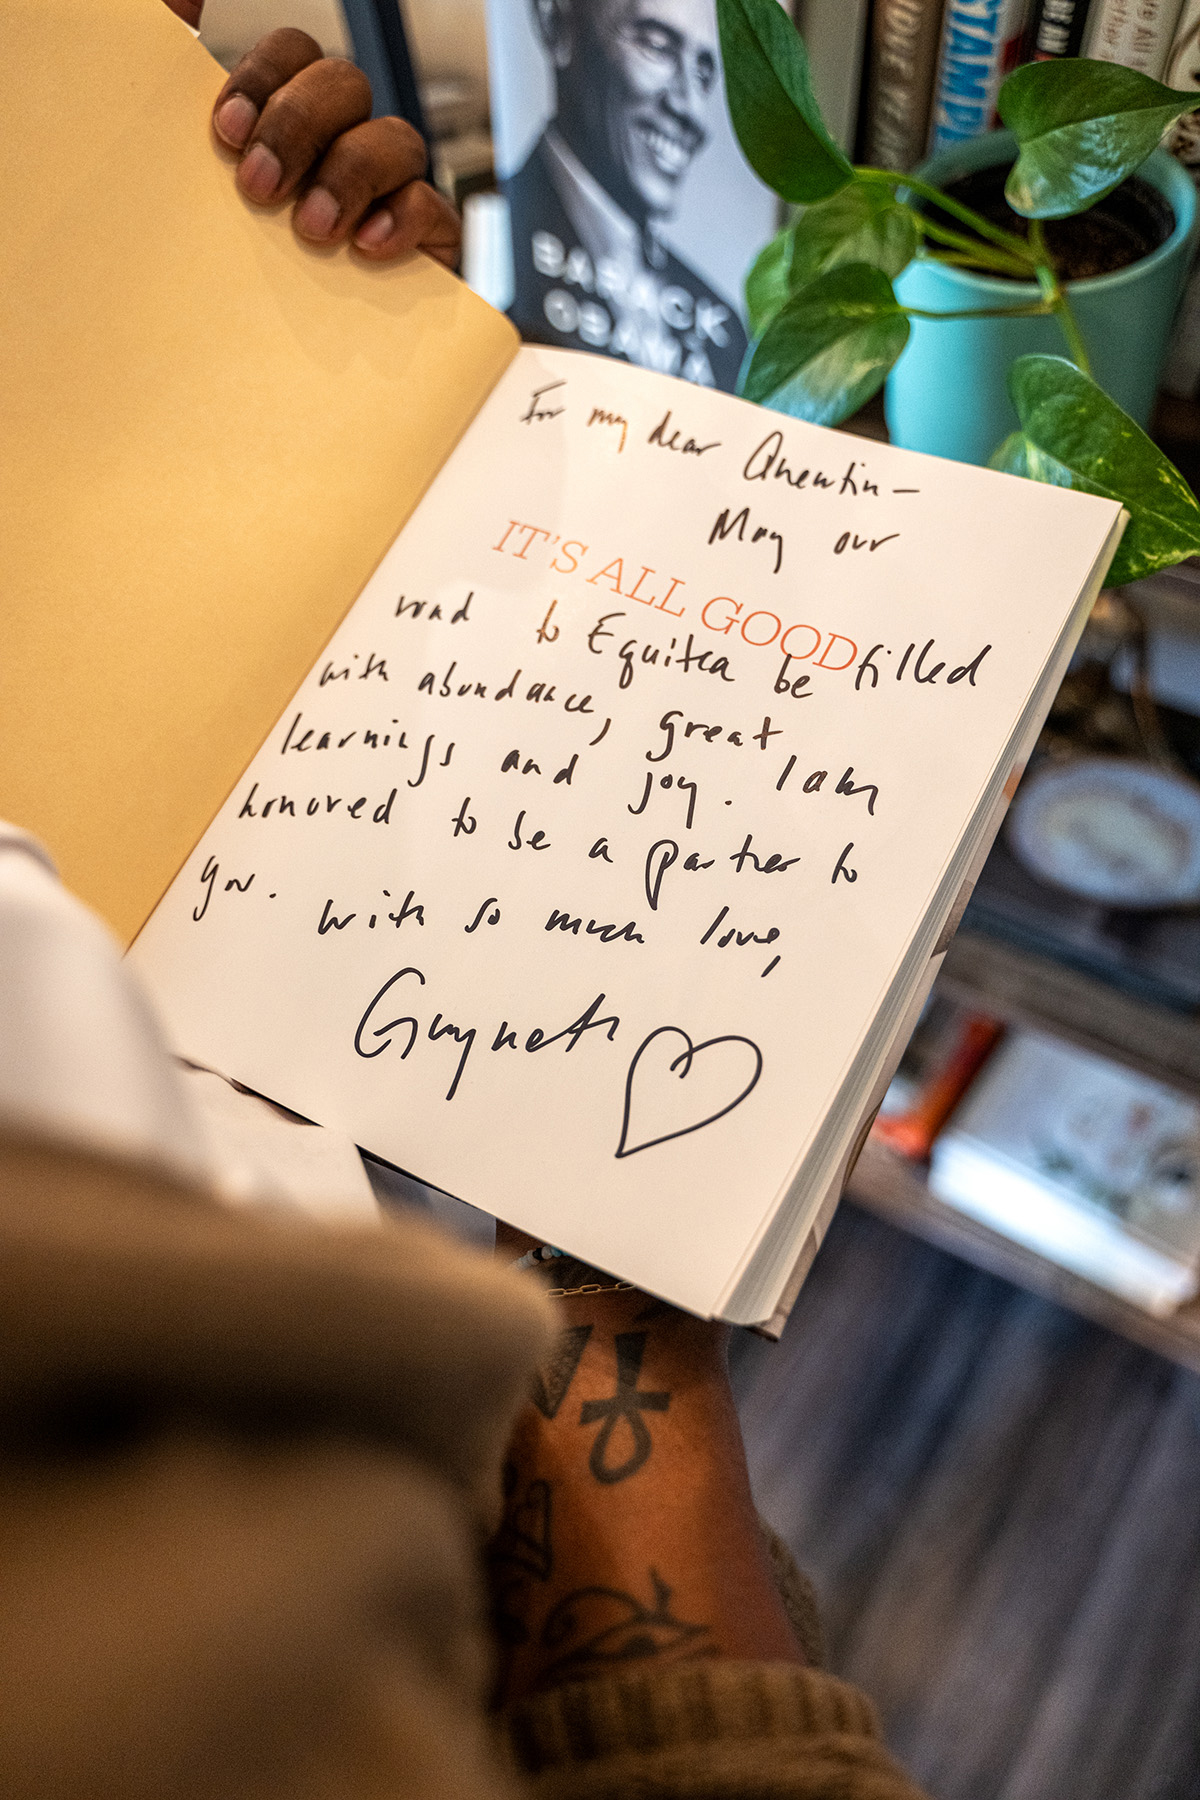 BARACK
OBAMA
STAMPE
For my dear Quentin —
May our
IT'S ALL GOOD
road to Equitea be filled
with abundance, great
learnings and joy. I am
honored to be a partner to
you.
with so much love,
Gwyneth